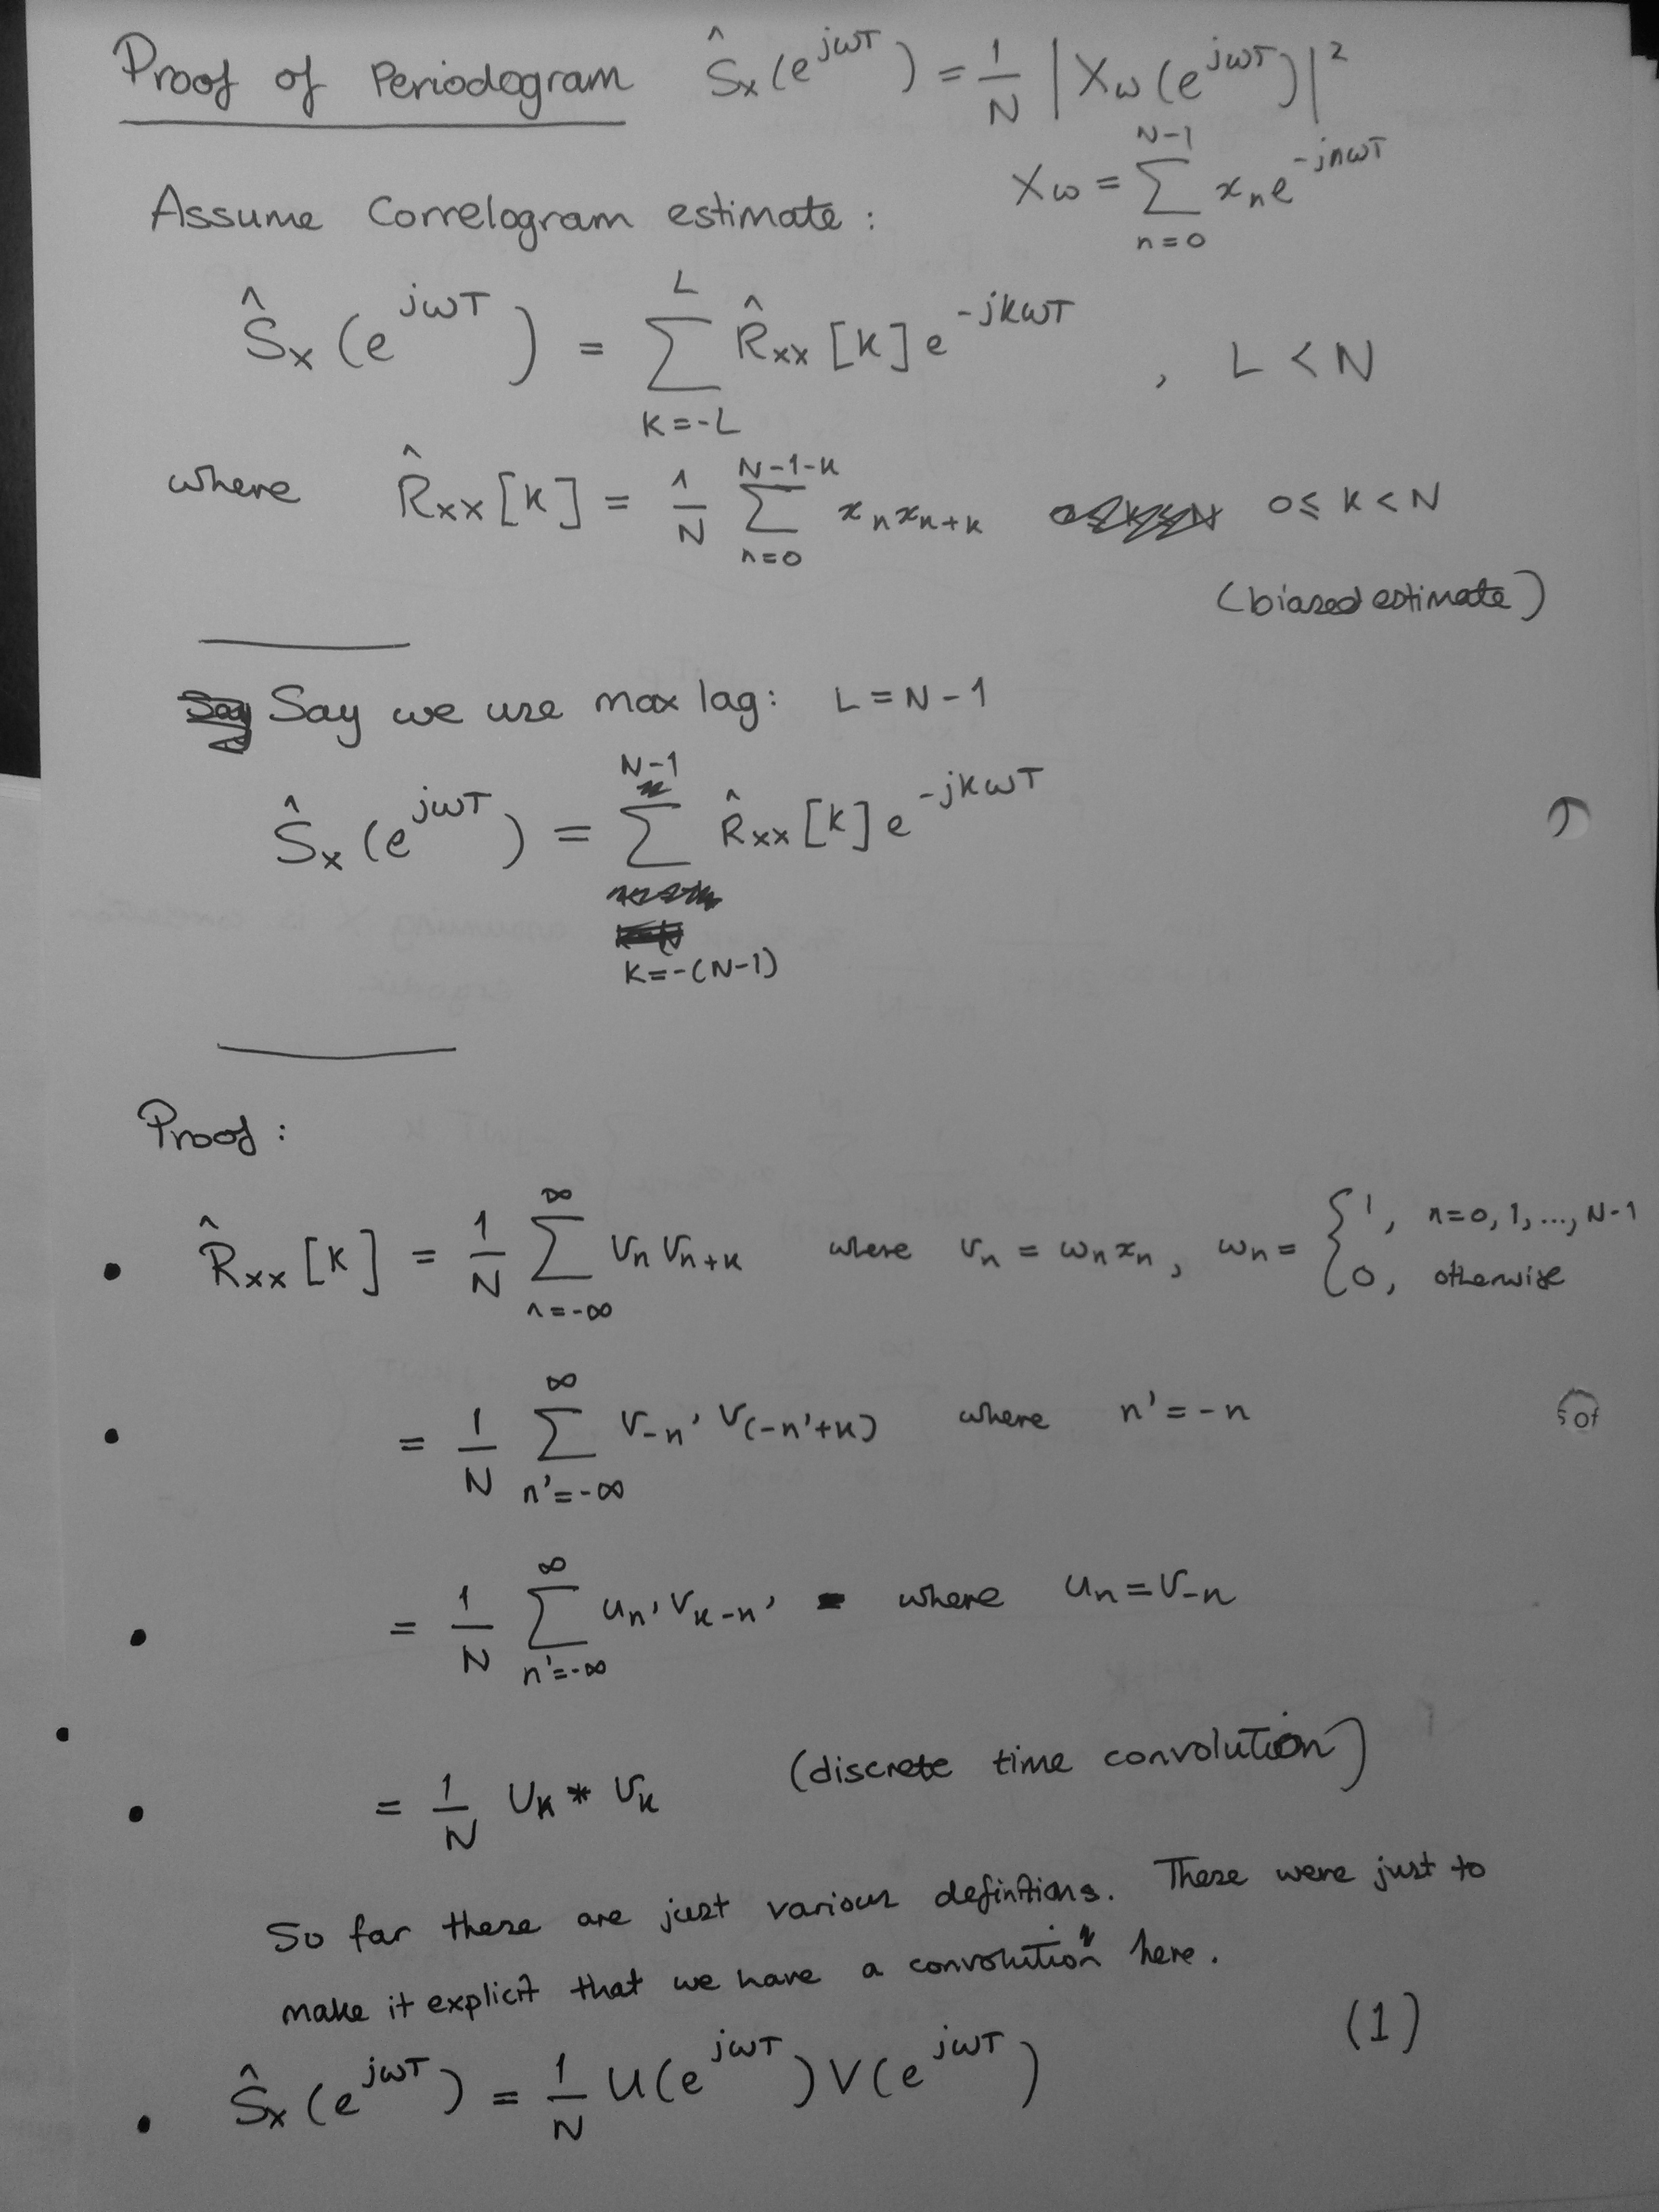 Proof of Periodogram Ŝx(e^jωT) = 1/N |Xω(e^jωT)|²
Xω = Σ_{n=0}^{N-1} xₙe^{-jnωT}
Assume Correlogram estimate :
Ŝx(e^jωT) = Σ_{k=-L}^{L} R̂xx[k]e^{-jkωT} , L < N
where R̂xx[k] = 1/N Σ_{n=0}^{N-1-k} xₙxₙ₊ₖ 0 ≤ k < N
(biased estimate)
Say we use max lag: L = N - 1
Ŝx(e^jωT) = Σ_{k=-(N-1)}^{N-1} R̂xx[k]e^{-jkωT}
Proof :
• R̂xx[k] = 1/N Σ_{n=-∞}^{∞} vₙvₙ₊ₖ where vₙ = ωₙxₙ, ωₙ = { 1, n=0,1,...,N-1
0, otherwise
• = 1/N Σ_{n'=-∞}^{∞} v_{-n'} v_{(-n'+k)} where n' = -n
• = 1/N Σ_{n'=-∞}^{∞} u_{n'} v_{k-n'} where uₙ = v₋ₙ
• = 1/N Uₖ * Vₖ (discrete time convolution)
So far these are just various defintions. These were just to
make it explicit that we have a convolution here.
• Ŝx(e^jωT) = 1/N U(e^jωT)V(e^jωT) (1)
5 of